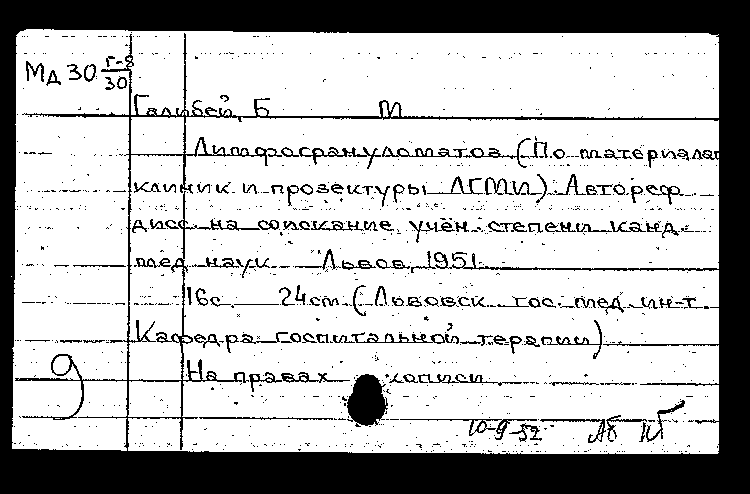 Мд 30 Г-8/30
Галибей, Б М
Лимфогрануломатоз (По материалам
клиник и прозектуры ЛГМИ) Автореф.
дисс. на соискание учён. степени канд.
мед. наук Львов, 1951.
16с. 24cm. (Львовск. гос. мед. ин-т.
Кафедра госпитальной терапии)
На правах рукописи
9
10-9-52